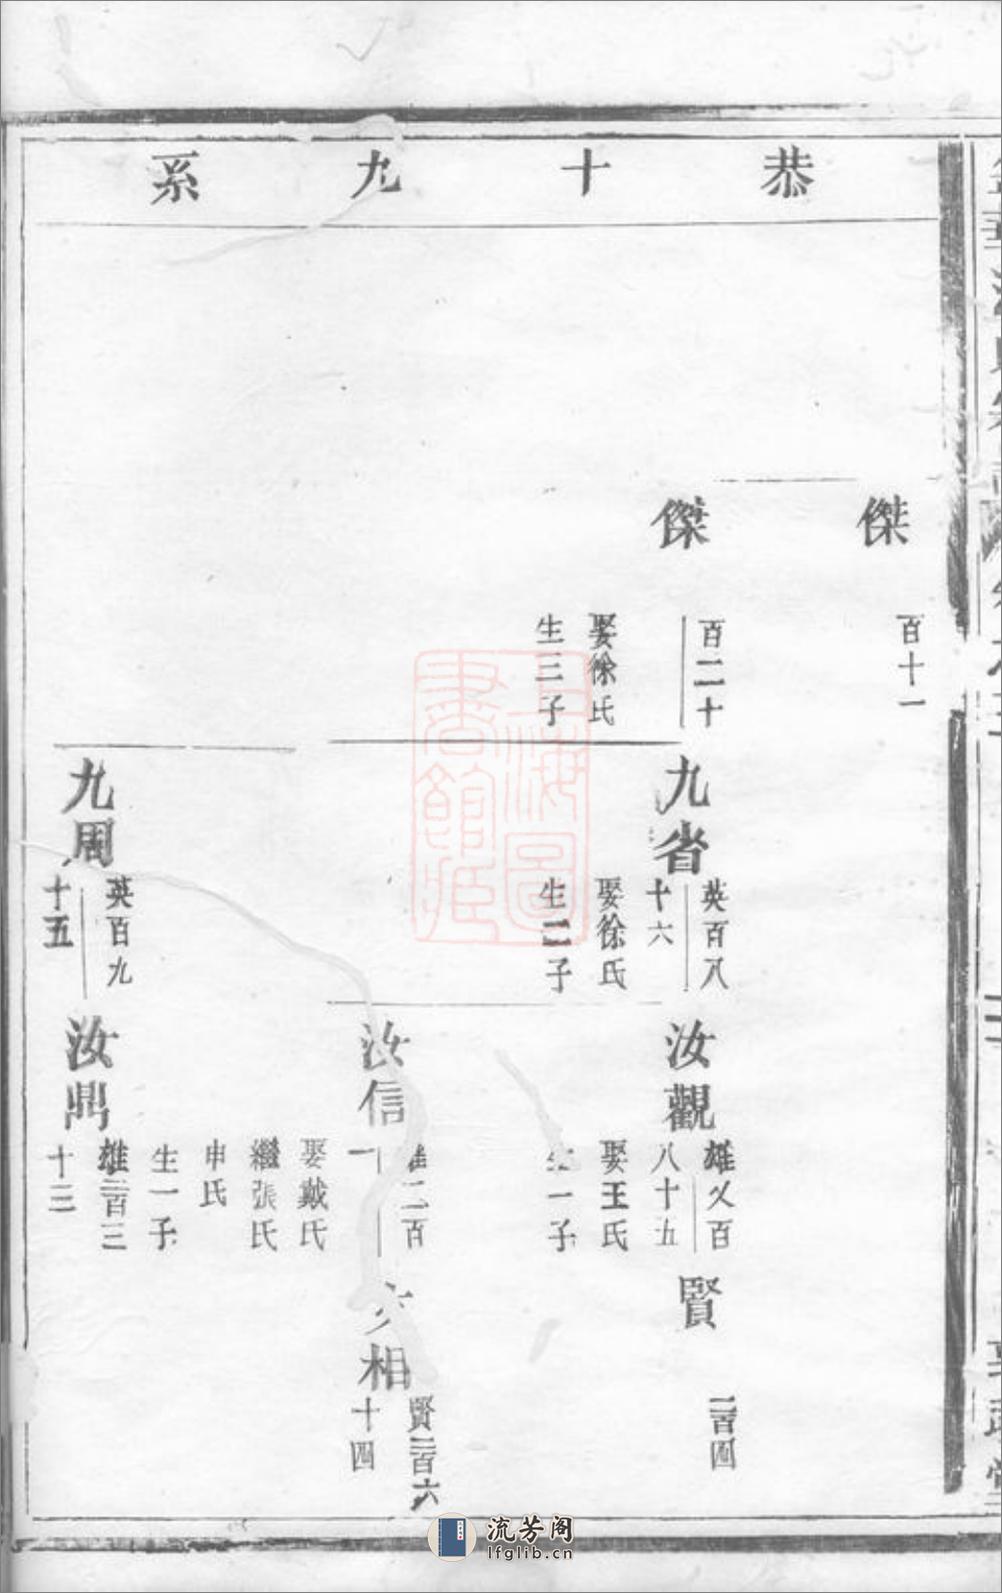 恭十九系
傑
百十一
傑
百二十
娶徐氏
生三子
九省
英百八
十六
娶徐氏
生二子
九周
英百九
十五
汝觀
雄乆百
八十五
娶王氏
一子
汝信
二百
一
娶戴氏
繼張氏
申氏
生一子
汝鼎
雄三百三
十三
賢
二百四
相
賢三百六
十四
上海圖書館藏
流芳阁
lfglib.cn